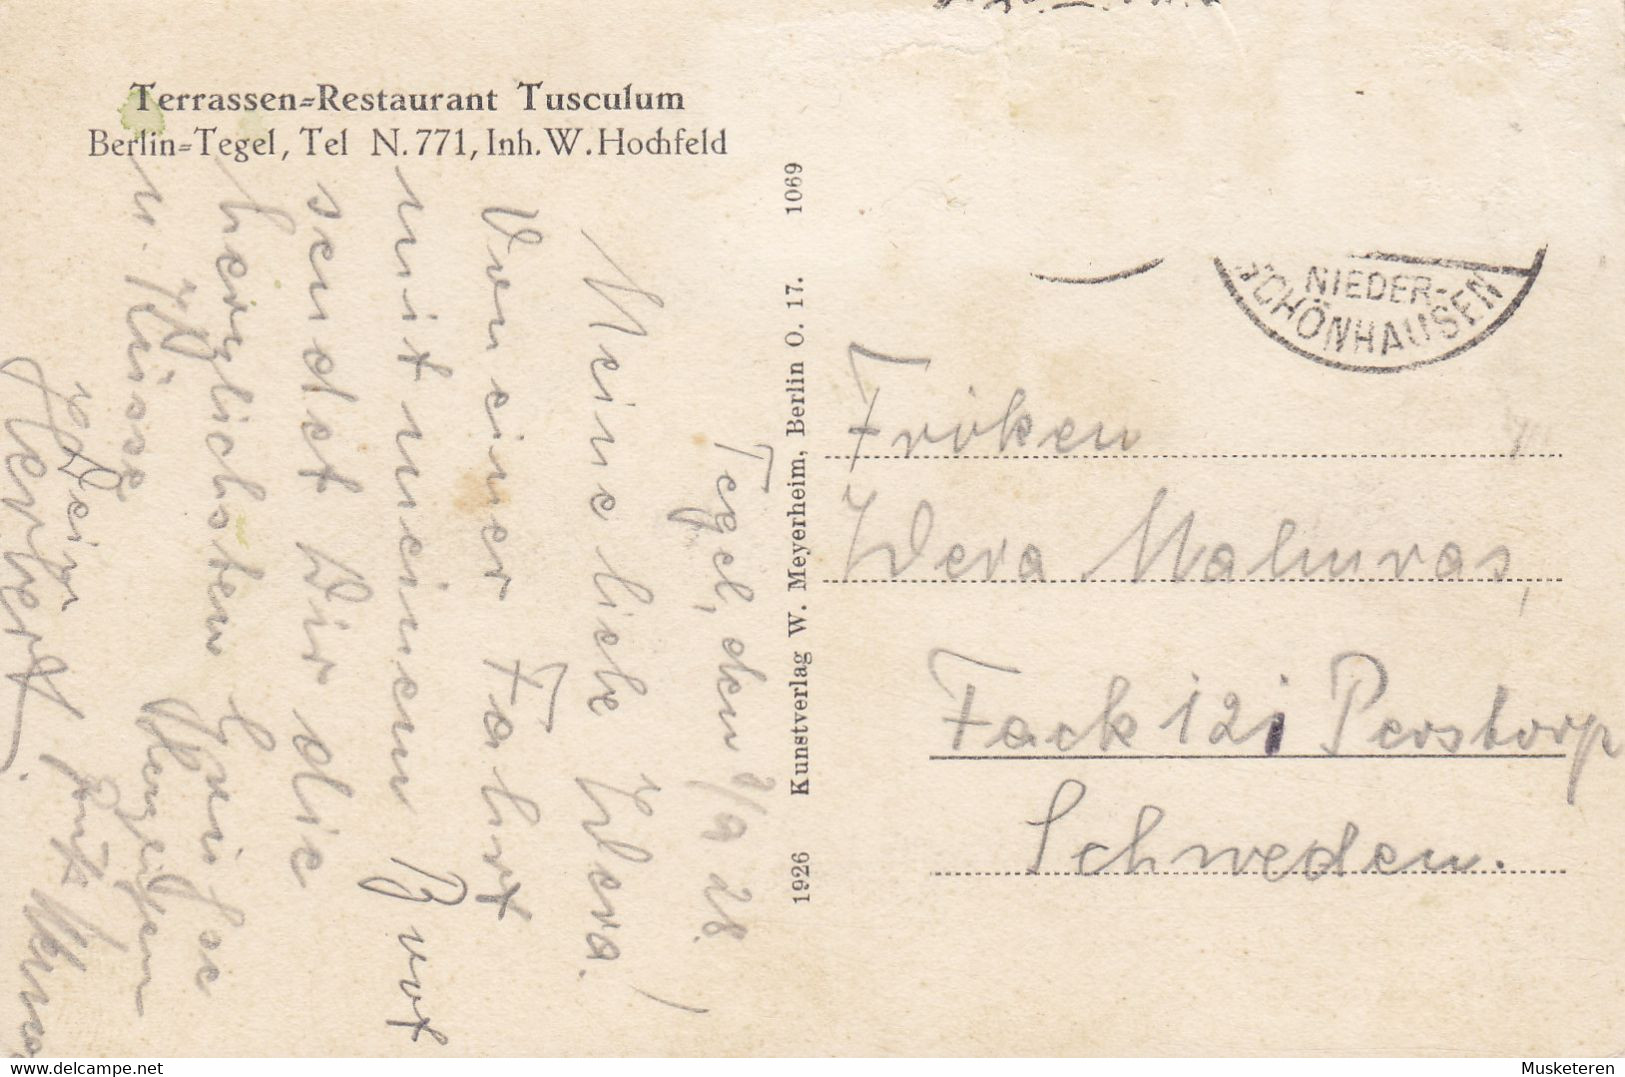 Terrassen=Restaurant Tusculum
Berlin=Tegel, Tel N. 771, Inh. W. Hochfeld
Tegel, den 2/9 28.
Meine liebe Wera.
Von einer Fahrt
mit meinem Boot
sendet Dir die
herzlichsten Grüsse
u. Küsse
Dein
Herbert.
1926 Kunstverlag W. Meyerheim, Berlin O. 17. 1069
NIEDER-
SCHÖNHAUSEN
Fröken
Wera Malmras,
Fack 121 Perstorp
Schweden.
delcampe.net
Musketeren